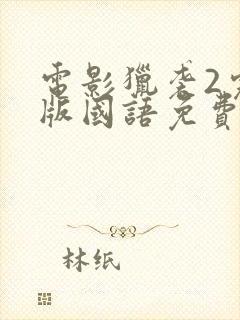 電影獵袭2完
版國語免費
林纸